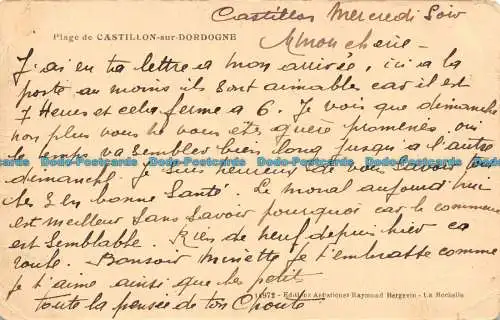 Castillon Mercredi Soir
Plage de CASTILLON-sur-DORDOGNE
Mmon cherie -
J'ai en ta lettre a mon arrivée, ici a la
poste au moins ils sont aimables car il est
7 Heures et cela ferme a 6. Je vois que dimanche
non plus vous ne vous etes guère promenés, oui
le temps va sembler bien long jusqu'a l'autre
Dodo-Postcards Dodo-Postcards Dodo-Postcards Dodo-Postcards Dodo-Postcards
dimanche. Je suis heureux de vous savoir tous
les 3 en bonne Santé. Le moral aujourd'hui
est meilleur sans savoir pourquoi car le commerce
est semblable. Rien de neuf depuis hier ca
roule. Bonsoir Minette je t'embrasse comme
je t'aime ainsi que les petits
11972 - Editions Artistiques Raymond Bergevin - La Rochelle
toute la pensée de ton